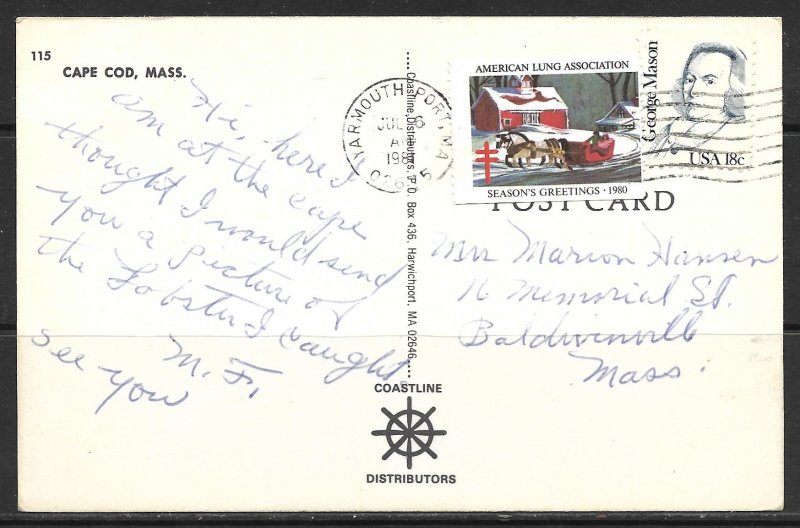 115
CAPE COD, MASS.
Hi, here I
am at the cape
thought I would send
you a picture of
the Lobster I caught.
M. F.
see you
Coastline Distributors, P.O. Box 436, Harwichport, MA 02646
YARMOUTH PORT, MA
JUL 6
AM
198
026 5
AMERICAN LUNG ASSOCIATION
SEASON'S GREETINGS · 1980
George Mason
USA 18c
POST CARD
Mrs Marion Hansen
16 Memorial St.
Baldwinville
Mass.
COASTLINE
DISTRIBUTORS